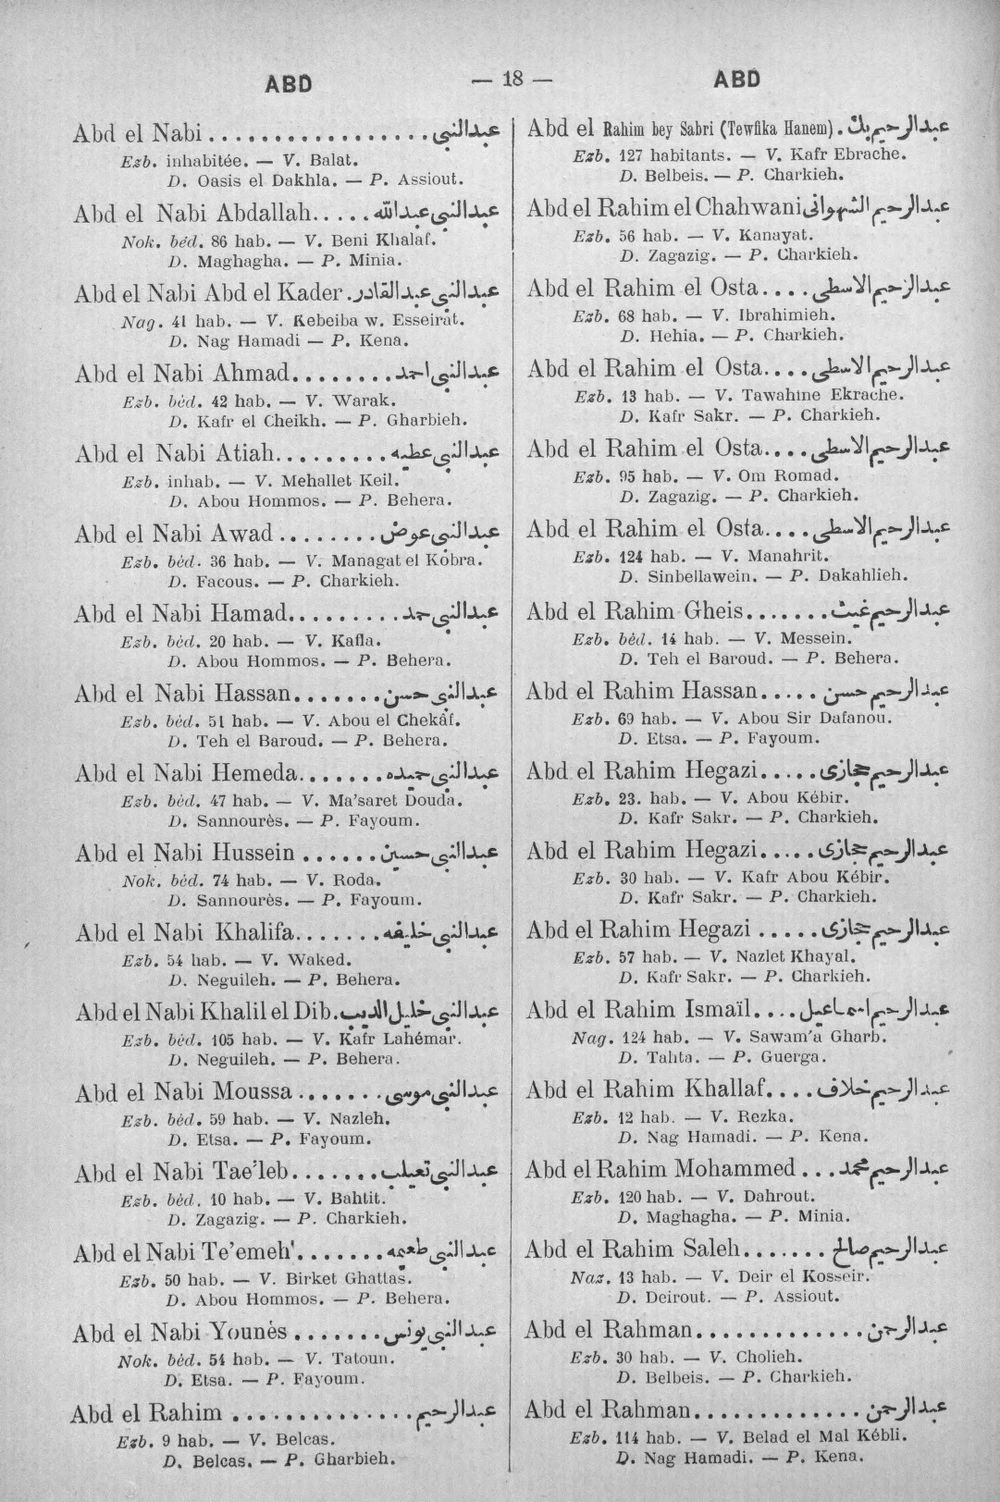 ABD — 18 — ABD
Abd el Nabi ................ عبدالنبى
Ezb. inhabitée. — V. Balat.
D. Oasis el Dakhla. — P. Assiout.
Abd el Nabi Abdallah..... عبدالنبى عبدالله
Nok. béd. 86 hab. — V. Beni Khalaf.
D. Maghagha. — P. Minia.
Abd el Nabi Abd el Kader. عبدالنبى عبدالقادر
Nag. 41 hab. — V. Kebeiba w. Esseirat.
D. Nag Hamadi — P. Kena.
Abd el Nabi Ahmad........ عبدالنبى احمد
Ezb. béd. 42 hab. — V. Warak.
D. Kafr el Cheikh. — P. Gharbieh.
Abd el Nabi Atiah......... عبدالنبى عطيه
Ezb. inhab. — V. Mehallet Keil.
D. Abou Hommos. — P. Behera.
Abd el Nabi Awad ........ عبدالنبى عوض
Ezb. béd. 36 hab. — V. Managat el Kobra.
D. Facous. — P. Charkieh.
Abd el Nabi Hamad......... عبدالنبى حمد
Ezb. béd. 20 hab. — V. Kafla.
D. Abou Hommos. — P. Behera.
Abd el Nabi Hassan....... عبدالنبى حسن
Ezb. béd. 51 hab. — V. Abou el Chekâf.
D. Teh el Baroud. — P. Behera.
Abd el Nabi Hemeda....... عبدالنبى حميده
Ezb. béd. 47 hab. — V. Ma'saret Douda.
D. Sannourès. — P. Fayoum.
Abd el Nabi Hussein ...... عبدالنبى حسين
Nok. béd. 74 hab. — V. Roda.
D. Sannourès. — P. Fayoum.
Abd el Nabi Khalifa....... عبدالنبى خليفه
Ezb. 54 hab. — V. Waked.
D. Neguileh. — P. Behera.
Abd el Nabi Khalil el Dib. عبدالنبى خليل الديب
Ezb. béd. 105 hab. — V. Kafr Lahémar.
D. Neguileh. — P. Behera.
Abd el Nabi Moussa ....... عبدالنبى موسى
Ezb. béd. 59 hab. — V. Nazleh.
D. Etsa. — P. Fayoum.
Abd el Nabi Tae'leb....... عبدالنبى تعيلب
Ezb. béd. 10 hab. — V. Bahtit.
D. Zagazig. — P. Charkieh.
Abd el Nabi Te'emeh'....... عبدالنبى طعمه
Ezb. 50 hab. — V. Birket Ghattas.
D. Abou Hommos. — P. Behera.
Abd el Nabi Younès ....... عبدالنبى يونس
Nok. béd. 54 hab. — V. Tatoun.
D. Etsa. — P. Fayoum.
Abd el Rahim .............. عبدالرحيم
Ezb. 9 hab. — V. Belcas.
D. Belcas. — P. Gharbieh.
Abd el Rahim bey Sabri (Tewfika Hanem). عبدالرحيم بك
Ezb. 127 habitants. — V. Kafr Ebrache.
D. Belbeis. — P. Charkieh.
Abd el Rahim el Chahwani عبدالرحيم الشهوانى
Ezb. 56 hab. — V. Kanayat.
D. Zagazig. — P. Charkieh.
Abd el Rahim el Osta.... عبدالرحيم الاسطى
Ezb. 68 hab. — V. Ibrahimieh.
D. Hehia. — P. Charkieh.
Abd el Rahim el Osta.... عبدالرحيم الاسطى
Ezb. 13 hab. — V. Tawahine Ekrache.
D. Kafr Sakr. — P. Charkieh.
Abd el Rahim el Osta.... عبدالرحيم الاسطى
Ezb. 95 hab. — V. Om Romad.
D. Zagazig. — P. Charkieh.
Abd el Rahim el Osta.... عبدالرحيم الاسطى
Ezb. 124 hab. — V. Manahrit.
D. Sinbellawein. — P. Dakahlieh.
Abd el Rahim Gheis....... عبدالرحيم غيث
Ezb. béd. 14 hab. — V. Messein.
D. Teh el Baroud. — P. Behera.
Abd el Rahim Hassan..... عبدالرحيم حسن
Ezb. 69 hab. — V. Abou Sir Dafanou.
D. Etsa. — P. Fayoum.
Abd el Rahim Hegazi..... عبدالرحيم حجازى
Ezb. 23. hab. — V. Abou Kébir.
D. Kafr Sakr. — P. Charkieh.
Abd el Rahim Hegazi..... عبدالرحيم حجازى
Ezb. 30 hab. — V. Kafr Abou Kébir.
D. Kafr Sakr. — P. Charkieh.
Abd el Rahim Hegazi ..... عبدالرحيم حجازى
Ezb. 57 hab. — V. Nazlet Khayal.
D. Kafr Sakr. — P. Charkieh.
Abd el Rahim Ismaïl.... عبدالرحيم اسماعيل
Nag. 124 hab. — V. Sawam'a Gharb.
D. Tahta. — P. Guerga.
Abd el Rahim Khallaf.... عبدالرحيم خلاف
Ezb. 12 hab. — V. Rezka.
D. Nag Hamadi. — P. Kena.
Abd el Rahim Mohammed ... عبدالرحيم محمد
Ezb. 120 hab. — V. Dahrout.
D. Maghagha. — P. Minia.
Abd el Rahim Saleh....... عبدالرحيم صالح
Naz. 13 hab. — V. Deir el Kosseir.
D. Deirout. — P. Assiout.
Abd el Rahman............ عبدالرحمن
Ezb. 30 hab. — V. Cholieh.
D. Belbeis. — P. Charkieh.
Abd el Rahman............ عبدالرحمن
Ezb. 114 hab. — V. Belad el Mal Kébli.
D. Nag Hamadi. — P. Kena.